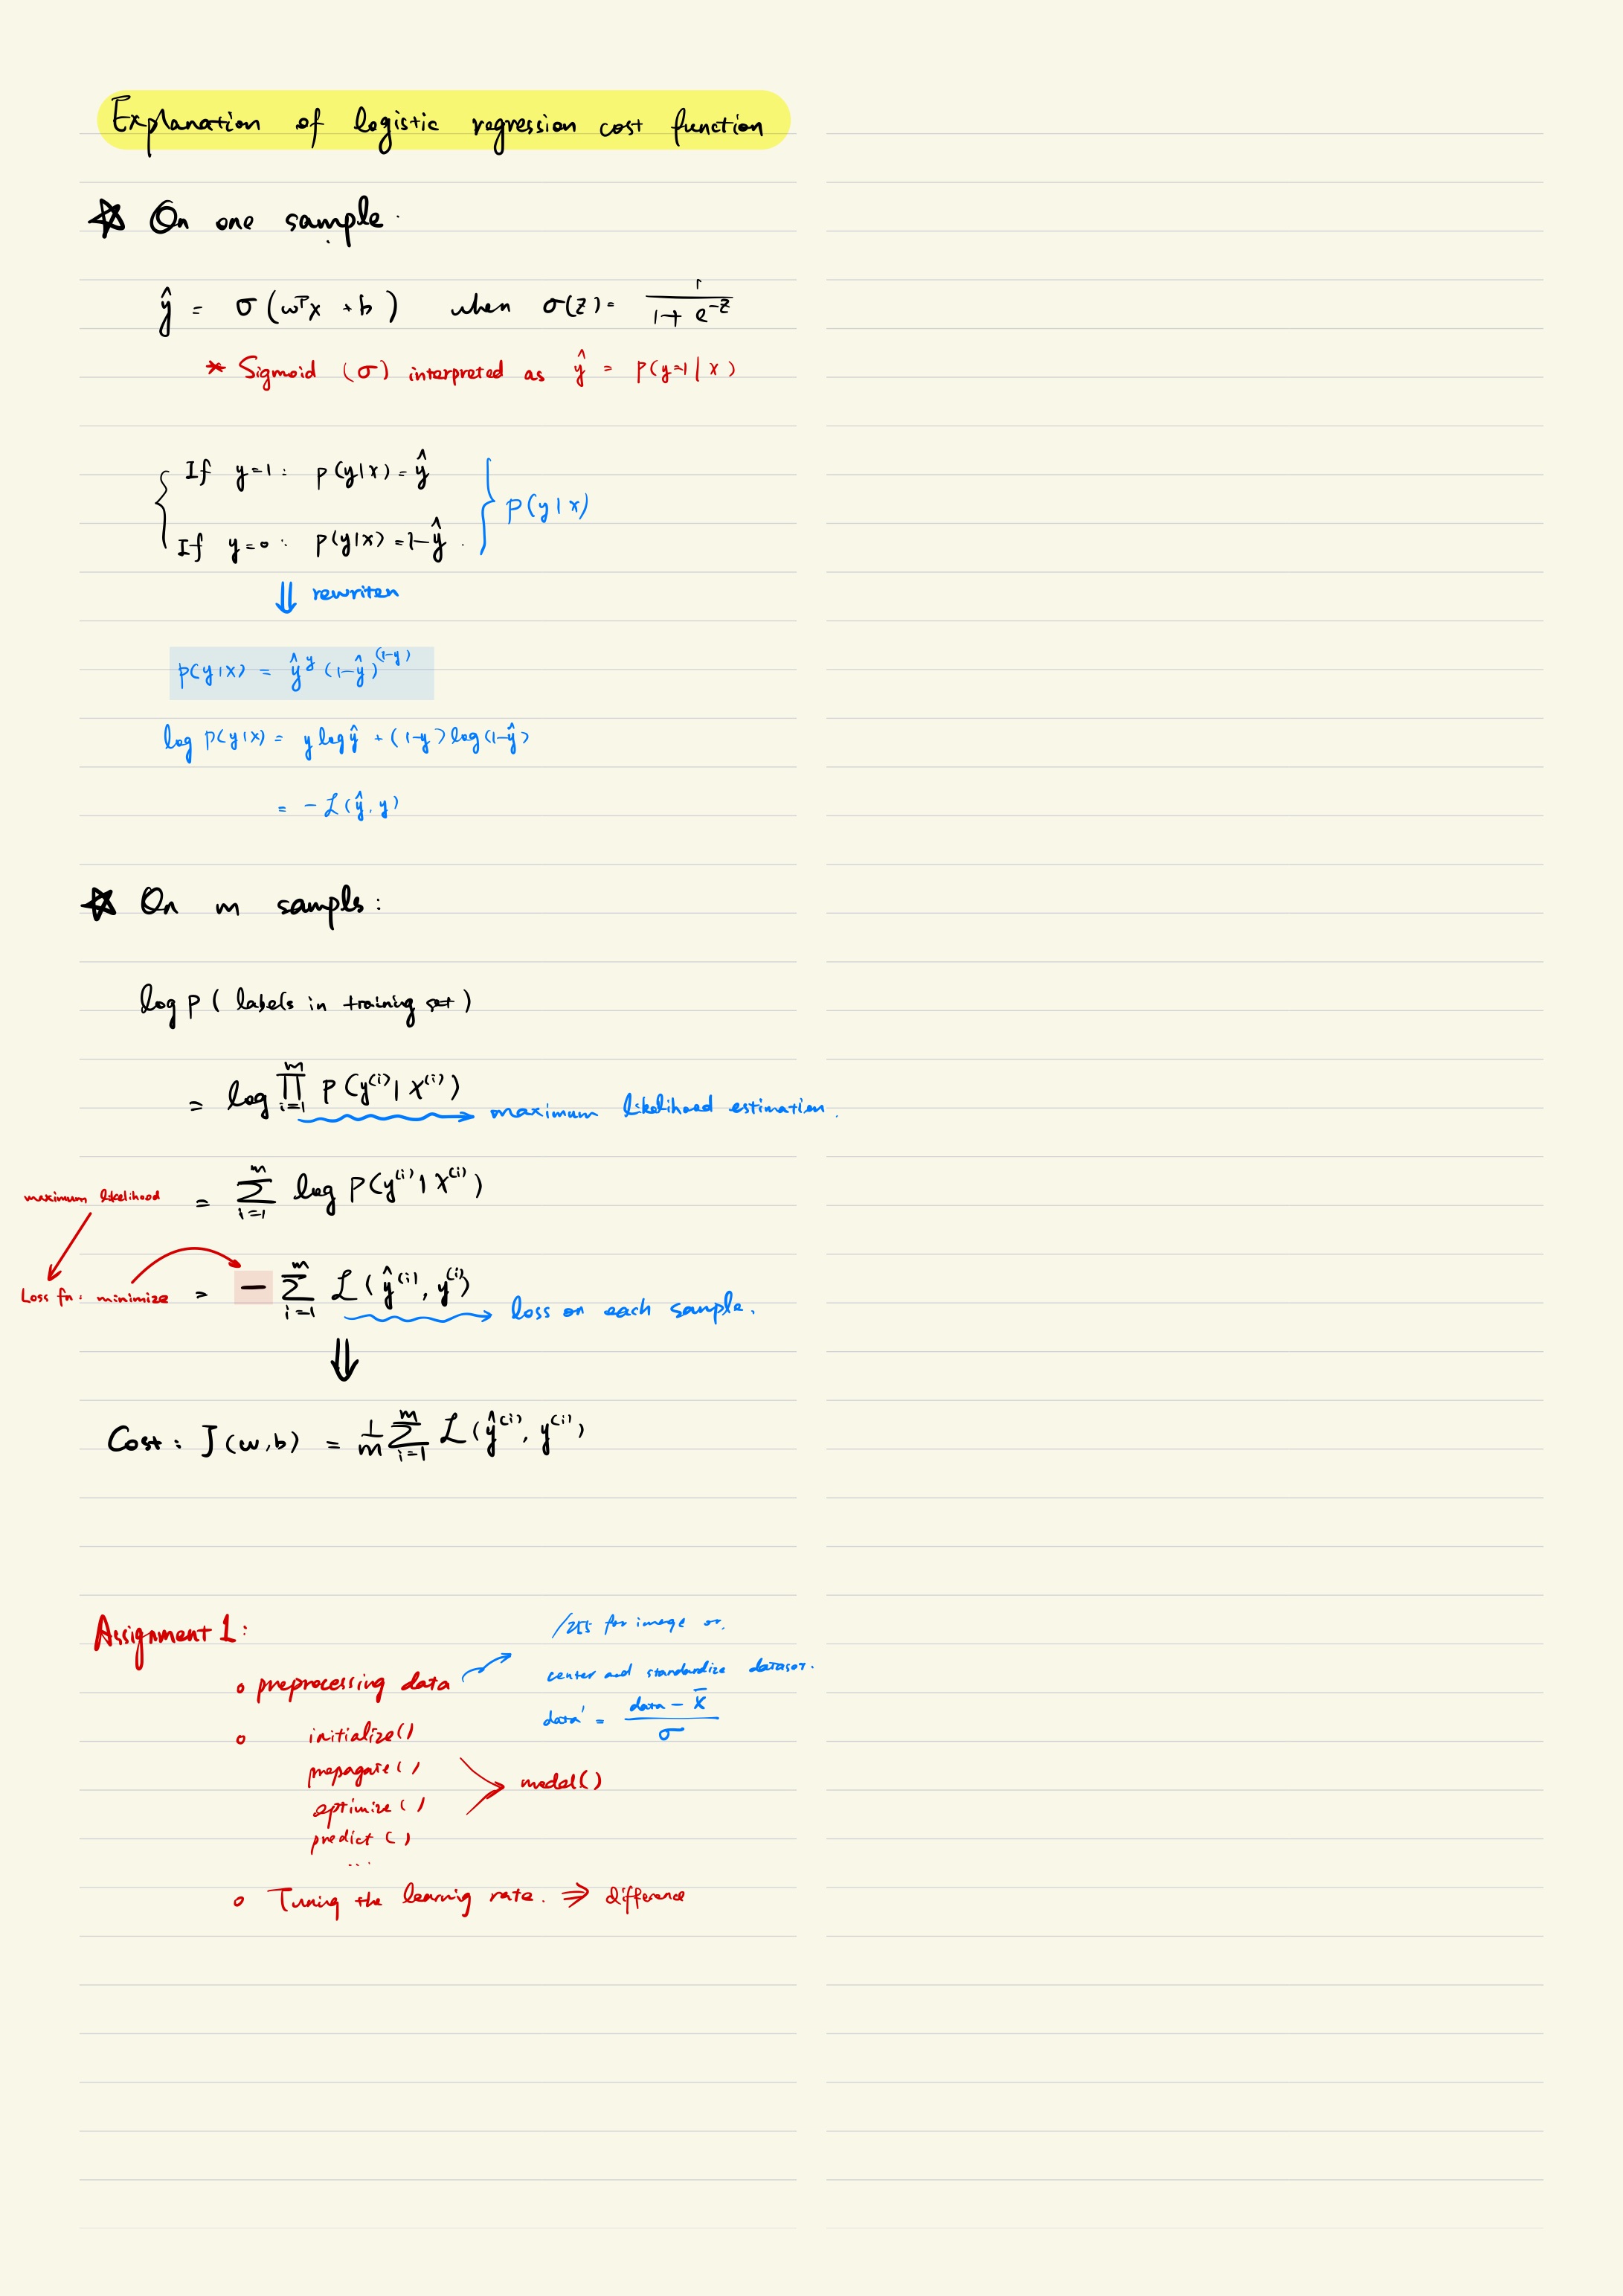 Explanation of logistic regression cost function
☆ On one sample.
ŷ = σ(wᵀx + b) when σ(z) = 1 / (1 + e^(-z))
* Sigmoid (σ) interpreted as ŷ = p(y=1|x)
{ If y=1: p(y|x) = ŷ
If y=0: p(y|x) = 1-ŷ. } p(y|x)
⇓ rewriten
p(y|x) = ŷ^y (1-ŷ)^(1-y)
log p(y|x) = y log ŷ + (1-y) log(1-ŷ)
= - ℒ(ŷ, y)
☆ On m sampls:
log p( labels in training set)
= log ∏_{i=1}^{m} P(y^(i)|x^(i)) → maximum likelihood estimation.
maximum likelihood = ∑_{i=1}^{m} log P(y^(i)|x^(i))
Loss fn: minimize = - ∑_{i=1}^{m} ℒ(ŷ^(i), y^(i)) → loss on each sample.
⇓
Cost: J(w,b) = 1/m ∑_{i=1}^{m} ℒ(ŷ^(i), y^(i))
Assignment 1:
/255 for image or.
∘ preprocessing data
center and standardize dataset.
data' = (data - x̄) / σ
∘ initialize()
propagate()
optimize()
model()
predict()
...
∘ Tuning the learning rate. ⇒ difference